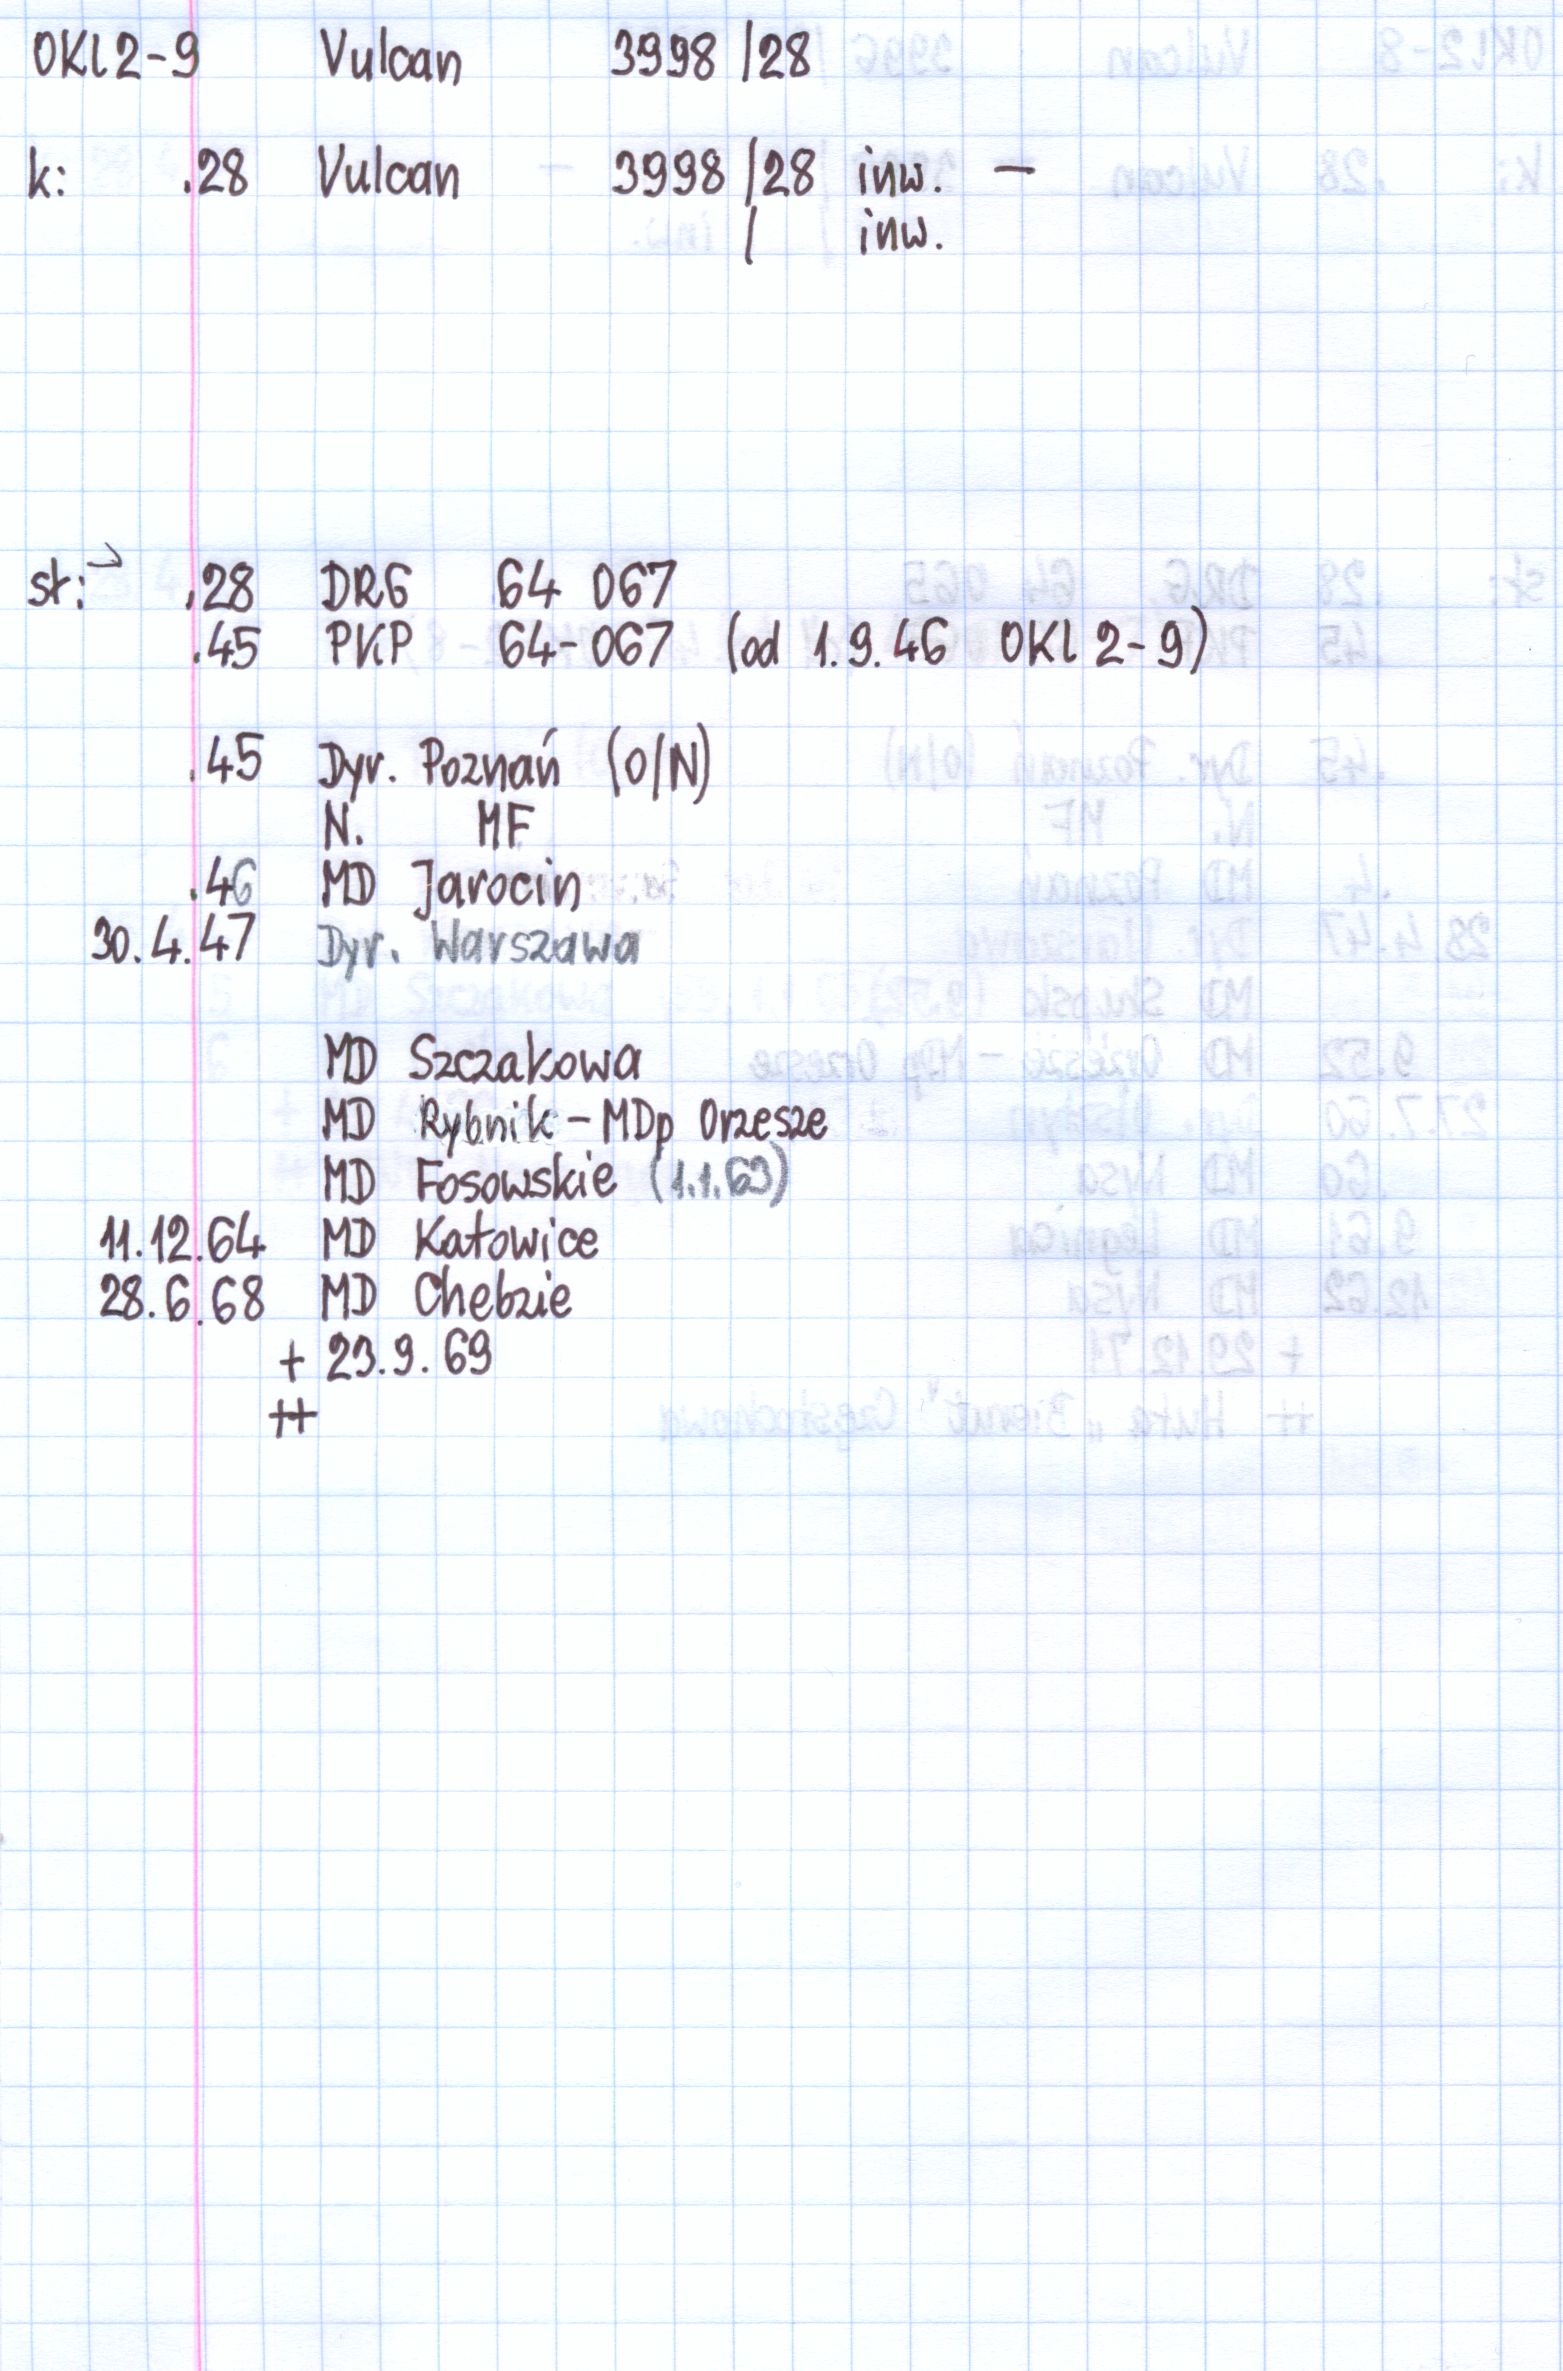 OKl 2-9 Vulcan 3998 /28
k: .28 Vulcan 3998 /28 inw. –
/ inw.
st: .28 DRG 64 067
.45 PKP 64-067 (od 1.9.46 OKl 2-9)
.45 Dyr. Poznań (O/N)
N. MF
.46 MD Jarocin
30.4.47 Dyr. Warszawa
MD Szczakowa
MD Rybnik – MDp Orzesze
MD Fosowskie (1.1.63)
11.12.64 MD Katowice
28.6.68 MD Chebzie
+ 23.9.69
++